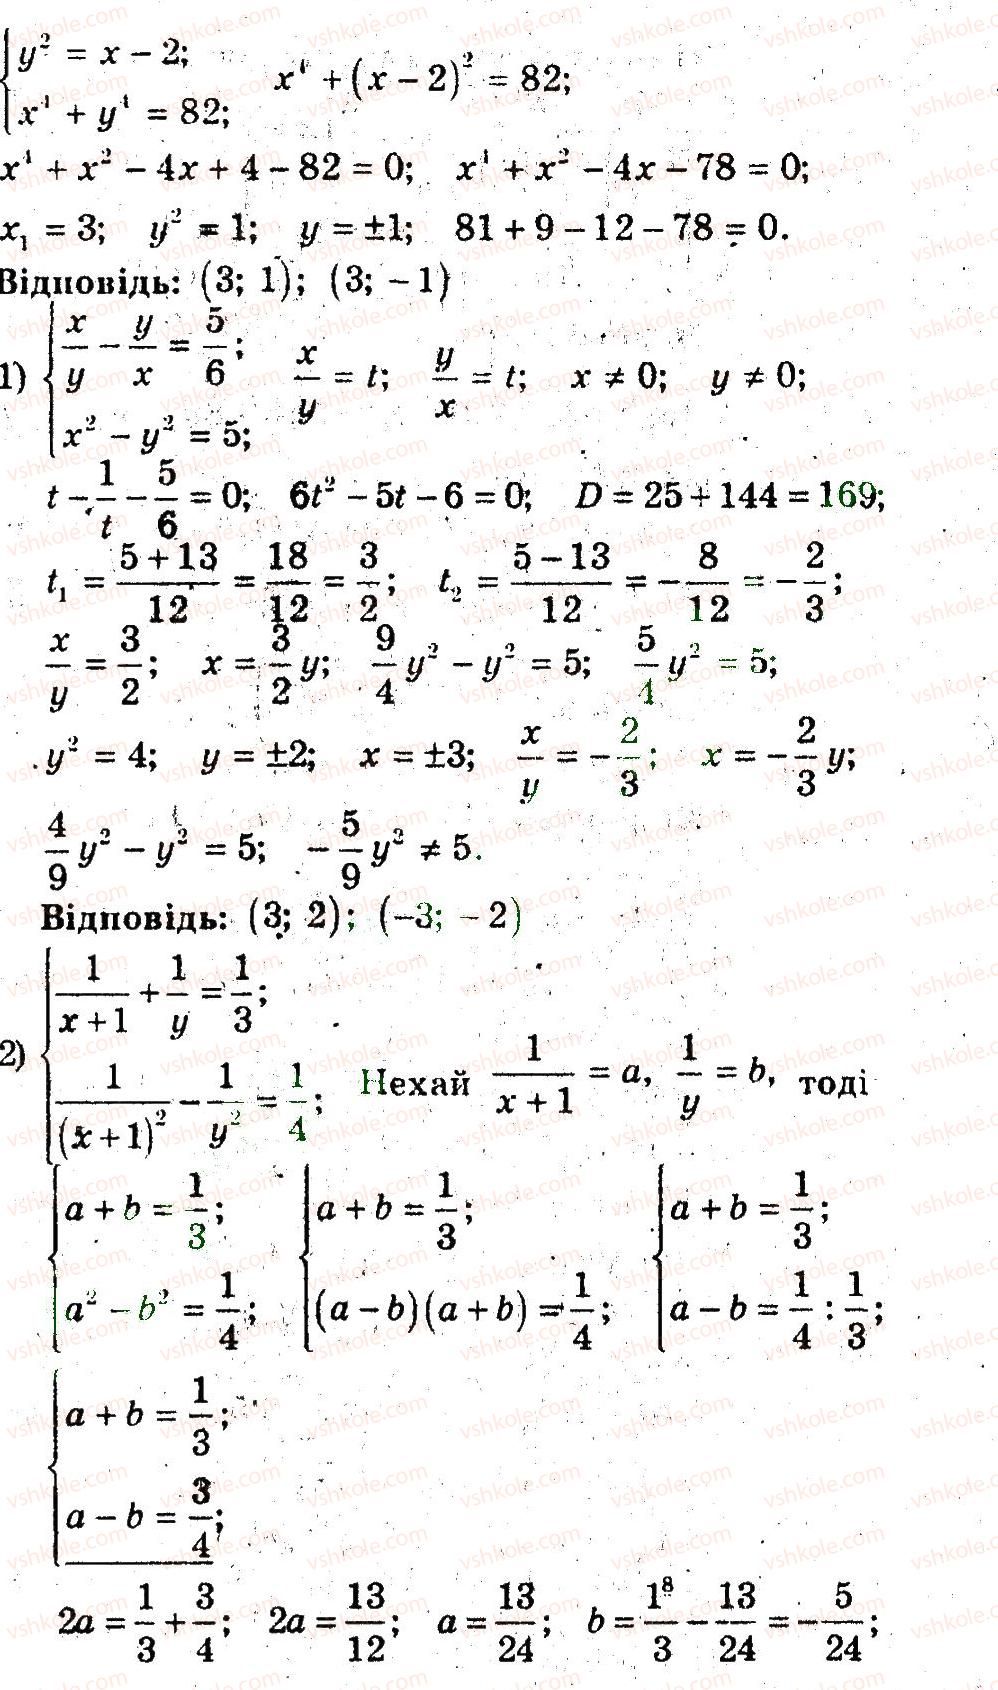 { y² = x − 2; x⁴ + (x − 2)² = 82;
x⁴ + y⁴ = 82;
x⁴ + x² − 4x + 4 − 82 = 0; x⁴ + x² − 4x − 78 = 0;
x₁ = 3; y² = 1; y = ±1; 81 + 9 − 12 − 78 = 0.
Відповідь: (3; 1); (3; −1)
1) { x/y − y/x = 5/6; x/y = t; y/x = t; x ≠ 0; y ≠ 0;
x² − y² = 5;
t − 1/t − 5/6 = 0; 6t² − 5t − 6 = 0; D = 25 + 144 = 169;
t₁ = (5 + 13)/12 = 18/12 = 3/2; t₂ = (5 − 13)/12 = −8/12 = −2/3;
x/y = 3/2; x = 3/2 y; 9/4 y² − y² = 5; 5/4 y² = 5;
y² = 4; y = ±2; x = ±3; x/y = −2/3; x = −2/3 y;
4/9 y² − y² = 5; −5/9 y² ≠ 5.
Відповідь: (3; 2); (−3; −2)
2) { 1/(x + 1) + 1/y = 1/3;
1/(x + 1)² − 1/y² = 1/4; Нехай 1/(x + 1) = a, 1/y = b, тоді
{ a + b = 1/3; { a + b = 1/3; { a + b = 1/3;
a² − b² = 1/4; (a − b)(a + b) = 1/4; a − b = 1/4 : 1/3;
{ a + b = 1/3;
a − b = 3/4;
2a = 1/3 + 3/4; 2a = 13/12; a = 13/24; b = 1⁸/3 − 13/24 = −5/24;